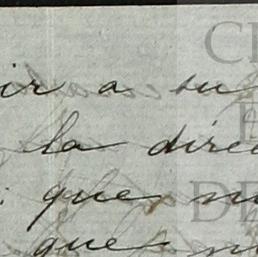 ir a su
la direc
que
que